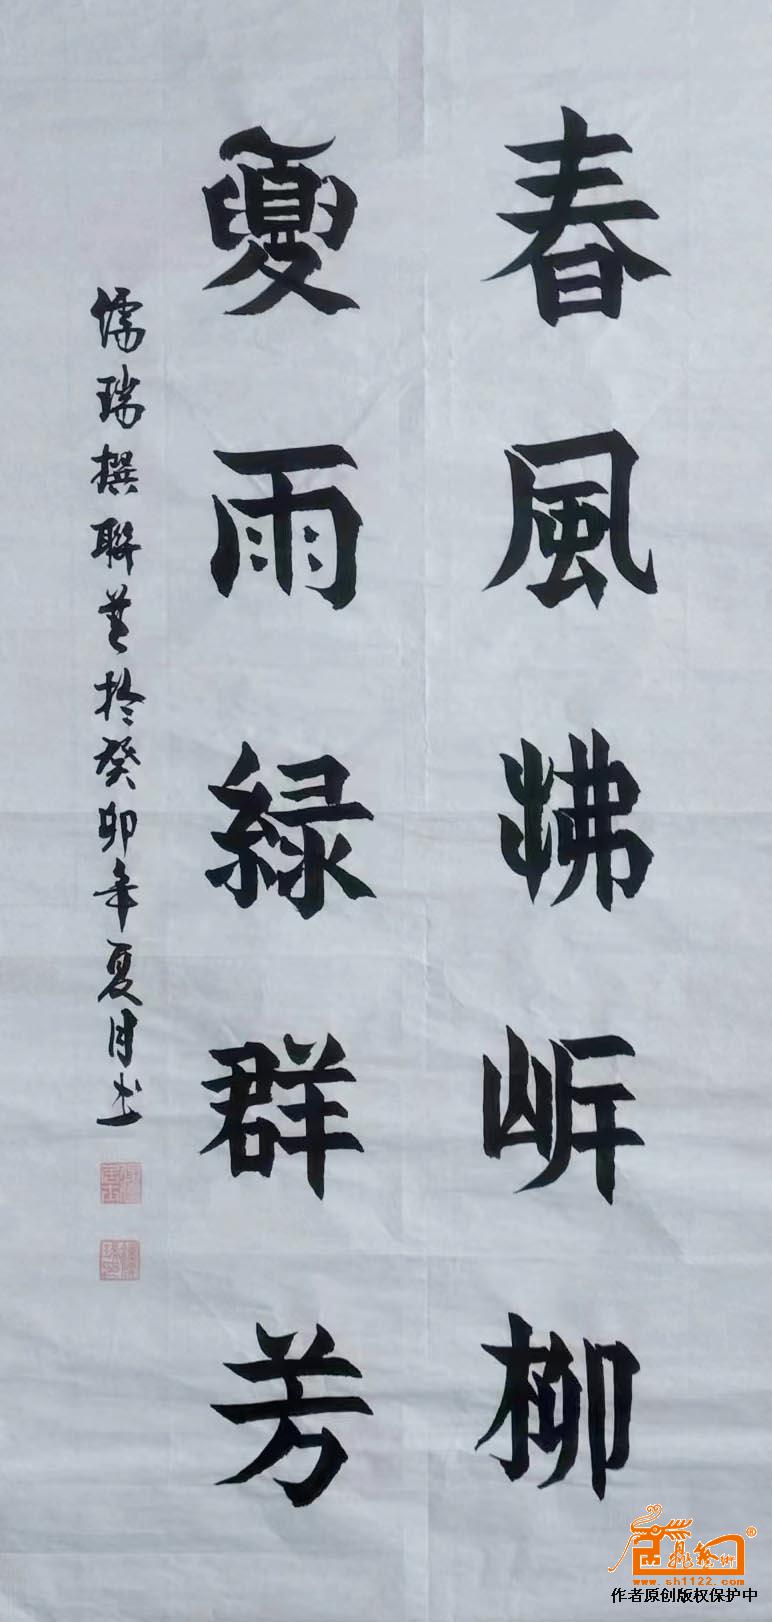 春風拂岸柳
夏雨緑群芳
儒瑞撰聯并於癸卯年夏月書
www.sh1122.com
作者原创版权保护中